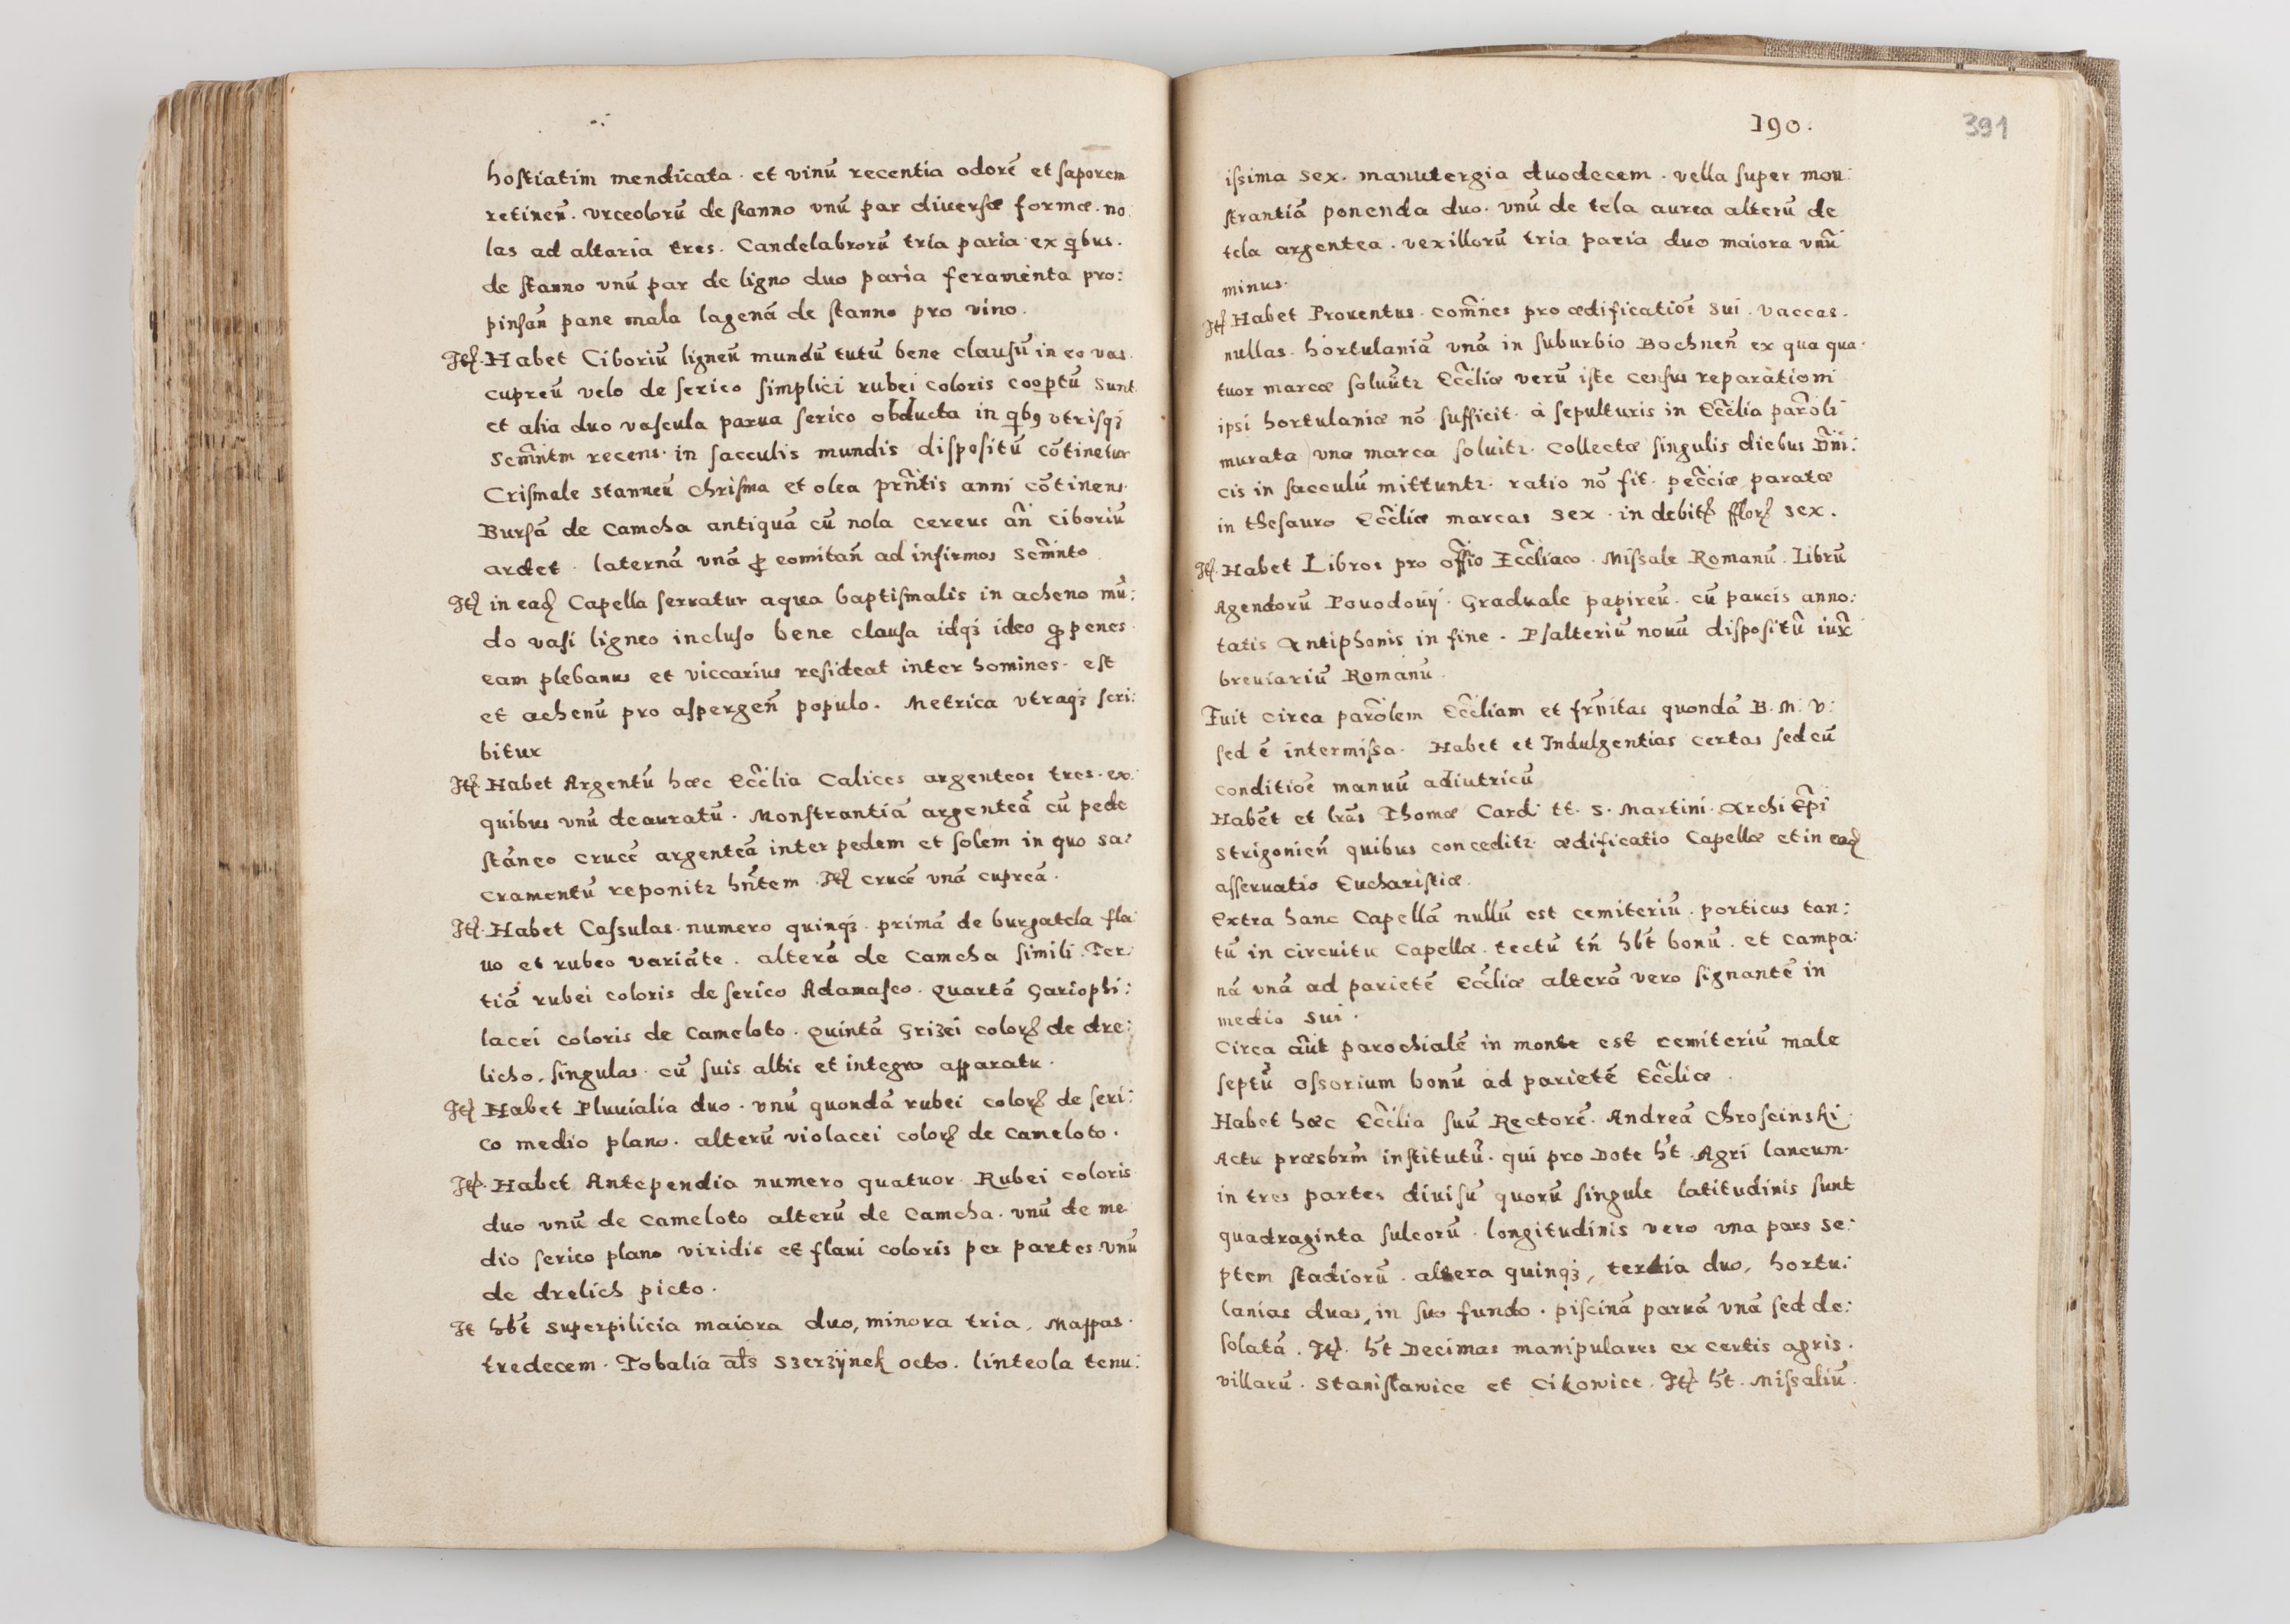 hostiatim mendicata. et vinū recentia odorē et saporem
retineñ. vrceolorū de stanno vnū par diuersæ formæ. no:
las ad altaria tres. Candelabrorū tria paria ex qbus.
de stanno vnū par de ligno duo paria feramenta pro:
pinsañ pane mala lagenā de stanno pro vino.
Itē. Habet Ciboriū ligneū mundū tutū bene clausū in eo vas.
cupreū velo de serico simplici rubei coloris coopertū sunt
et alia duo vascula parua serico obducta in qbq vtrisqȝ
Scm̄ntm recens. in sacculis mundis dispositū cōtinetur
Crismale stanneū chrisma et olea prn̄tis anni cōtinens.
Bursā de Camcha antiquā cū nola cereus añ ciboriū
ardet. laternā vnā ꝑ comitañ ad infirmos Scm̄nto
Itē in eadē Capella seruatur aqua baptismalis in acheno mū:
do vasi ligneo incluso bene clausa idqȝ ideo ꝙ penes
eam plebanus et viccarius resideat inter homines. est
et achenū pro aspergeñ populo. Metrica vtraqȝ scri:
bitur
Itē. Habet Argentū hæc Ecc̄lia Calices argenteos tres. ex
quibus vnū deauratū. Monstrantiā argenteā cū pede
stāneo crucē argenteā inter pedem et solem in quo sa:
cramentū reponitr hn̄tem. Itē crucē vnā cupreā.
Itē. Habet Cassulas. numero quinqȝ. primā de burgatela fla:
uo et rubeo variāte. alterā de Camcha simili. Ter:
tiā rubei coloris de serico Adamasco. Quartā Gariophi:
lacei coloris de Cameloto. Quintā Grizei colorē de dre:
licho. singulas. cū suis albis et integro apparatu.
Itē Habet Pluuialia duo. vnū quondā rubei colorē de seri:
co medio plano. alterū violacei colorē de Cameloto.
Itē. Habet Antependia numero quatuor Rubei coloris
duo vnū de Cameloto alterū de Camcha. vnū de me
dio serico plano viridis et flaui coloris per partes. vnū
de drelich picto.
It hb̄t superpilicia maiora duo, minora tria. Mappas.
tredecem. Tobalia als̄ Szerzÿnek octo. linteola tenu:
190.
391
issima sex. manutergia duodecem. vella super mon:
strantiā ponenda duo. vnū de tela aurea alterū de
tela argentea. vexillorū tria paria duo maiora vnū
minus.
Itē Habet Prouentus. com̄nes pro ædificatiōe sui. vaccas.
nullas. hortulaniā vnā in suburbio Bochneñ ex qua qua:
tuor marcæ soluūtr Ecc̄liæ verū iste census reparationi
ipsi hortulaniæ nō sufficit. à sepulturis in Ecc̄lia paroli
murata vna marca soluitr. Collectæ singulis diebus Dn̄i:
cis in sacculū mittuntr. ratio nō fit. pecc̄iæ paratæ
in thesauro Ecc̄liæ marcas sex. in debitē fflorē sex.
Itē. Habet Libros pro offīo Ecc̄liaco. Missale Romanū. Librū
Agendorū Powodouÿ. Graduale papireū. cū paucis anno:
tatis Antiphonis in fine. Psalteriū nouū dispositū iux̄
breuiariū Romanū.
Fuit circa parōlem Ecc̄liam et frn̄itas quondā B. M. V:
sed ē intermissa. Habet et Indulgentias certas sed cū
conditiōe manuū adiutricū
Habēt et lr̄as Thomæ Card. tt. S. Martini. Archi Ep̄i
Strigonieñ quibus conceditr ædificatio Capellæ et in eadē
asseruatio Eucharistiæ.
Extra hanc Capellā nullū est cemiteriū. porticus tan:
tū in circuitu Capellæ. tectū tñ hb̄t bonū. et campa:
nā vnā ad parietē Ecc̄liæ alterā vero signantē in
medio sui.
Circa aūt parochialē in monte est cemiteriū male
septū ossorium bonū ad parietē Ecc̄liæ.
Habet hæc Ecc̄lia suū Rectorē. Andreā Chroscinski.
Actu præsbrm̄ institutū. qui pro Dote h̄t. Agri laneum.
in tres partes diuisū quorū singule latitudinis sunt
quadraginta sulcorū. longitudinis vero vna pars se:
ptem stadiorū. altera quinqȝ, tertia duo, hortu:
lanias duas, in suo fundo. piscinā paruā vnā sed de:
solatā. Itē. h̄t Decimas manipulares ex certis agris.
villarū. Stanisławice et Cikowice. Itē h̄t. Missaliū.